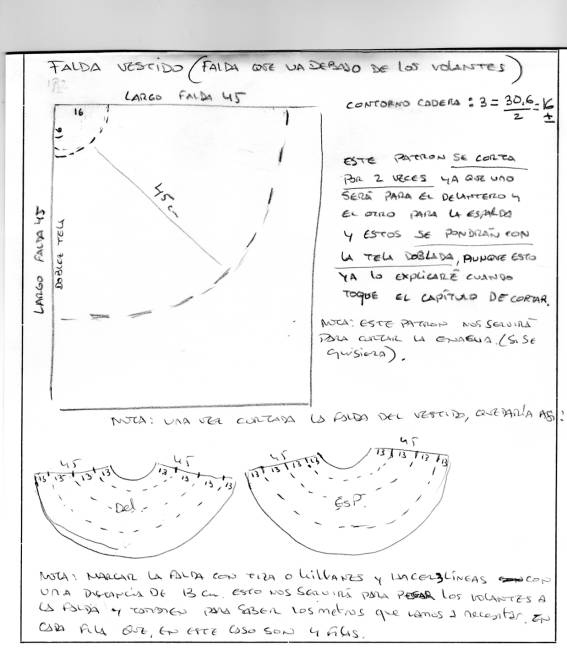 FALDA VESTIDO (FALDA QUE VA DEBAJO DE LOS VOLANTES)
LARGO FALDA 45
CONTORNO CADERA : 3 = 30,6 = 16
2
±
16
16
45 cm
LARGO FALDA 45
DOBLEZ TELA
ESTE PATRON SE CORTA
POR 2 VECES YA QUE UNO
SERÁ PARA EL DELANTERO Y
EL OTRO PARA LA ESPALDA
Y ESTOS SE PONDRÁN CON
LA TELA DOBLADA, AUNQUE ESTO
YA LO EXPLICARÉ CUANDO
TOQUE EL CAPÍTULO DE CORTAR.
NOTA: ESTE PATRON NOS SERVIRÁ
PARA CORTAR LA ENAGUA. (SI SE
QUISIERA).
NOTA: UNA VEZ CORTADA LA FALDA DEL VESTIDO, QUEDARÍA ASÍ:
45 45 45 45
13 13 13 13 13 13 13 13 13 13 13 13 13 13 12 13
Del. ESP.
NOTA: MARCAR LA FALDA CON TIZA O HILVANES Y HACER 3 LÍNEAS CON
UNA DISTANCIA DE 13 cm. ESTO NOS SERVIRÁ PARA PEGAR LOS VOLANTES A
LA FALDA Y TAMBIEN PARA SABER LOS METROS QUE VAMOS A NECESITAR. EN
CADA FILA QUE, EN ESTE CASO SON 4 FILAS.